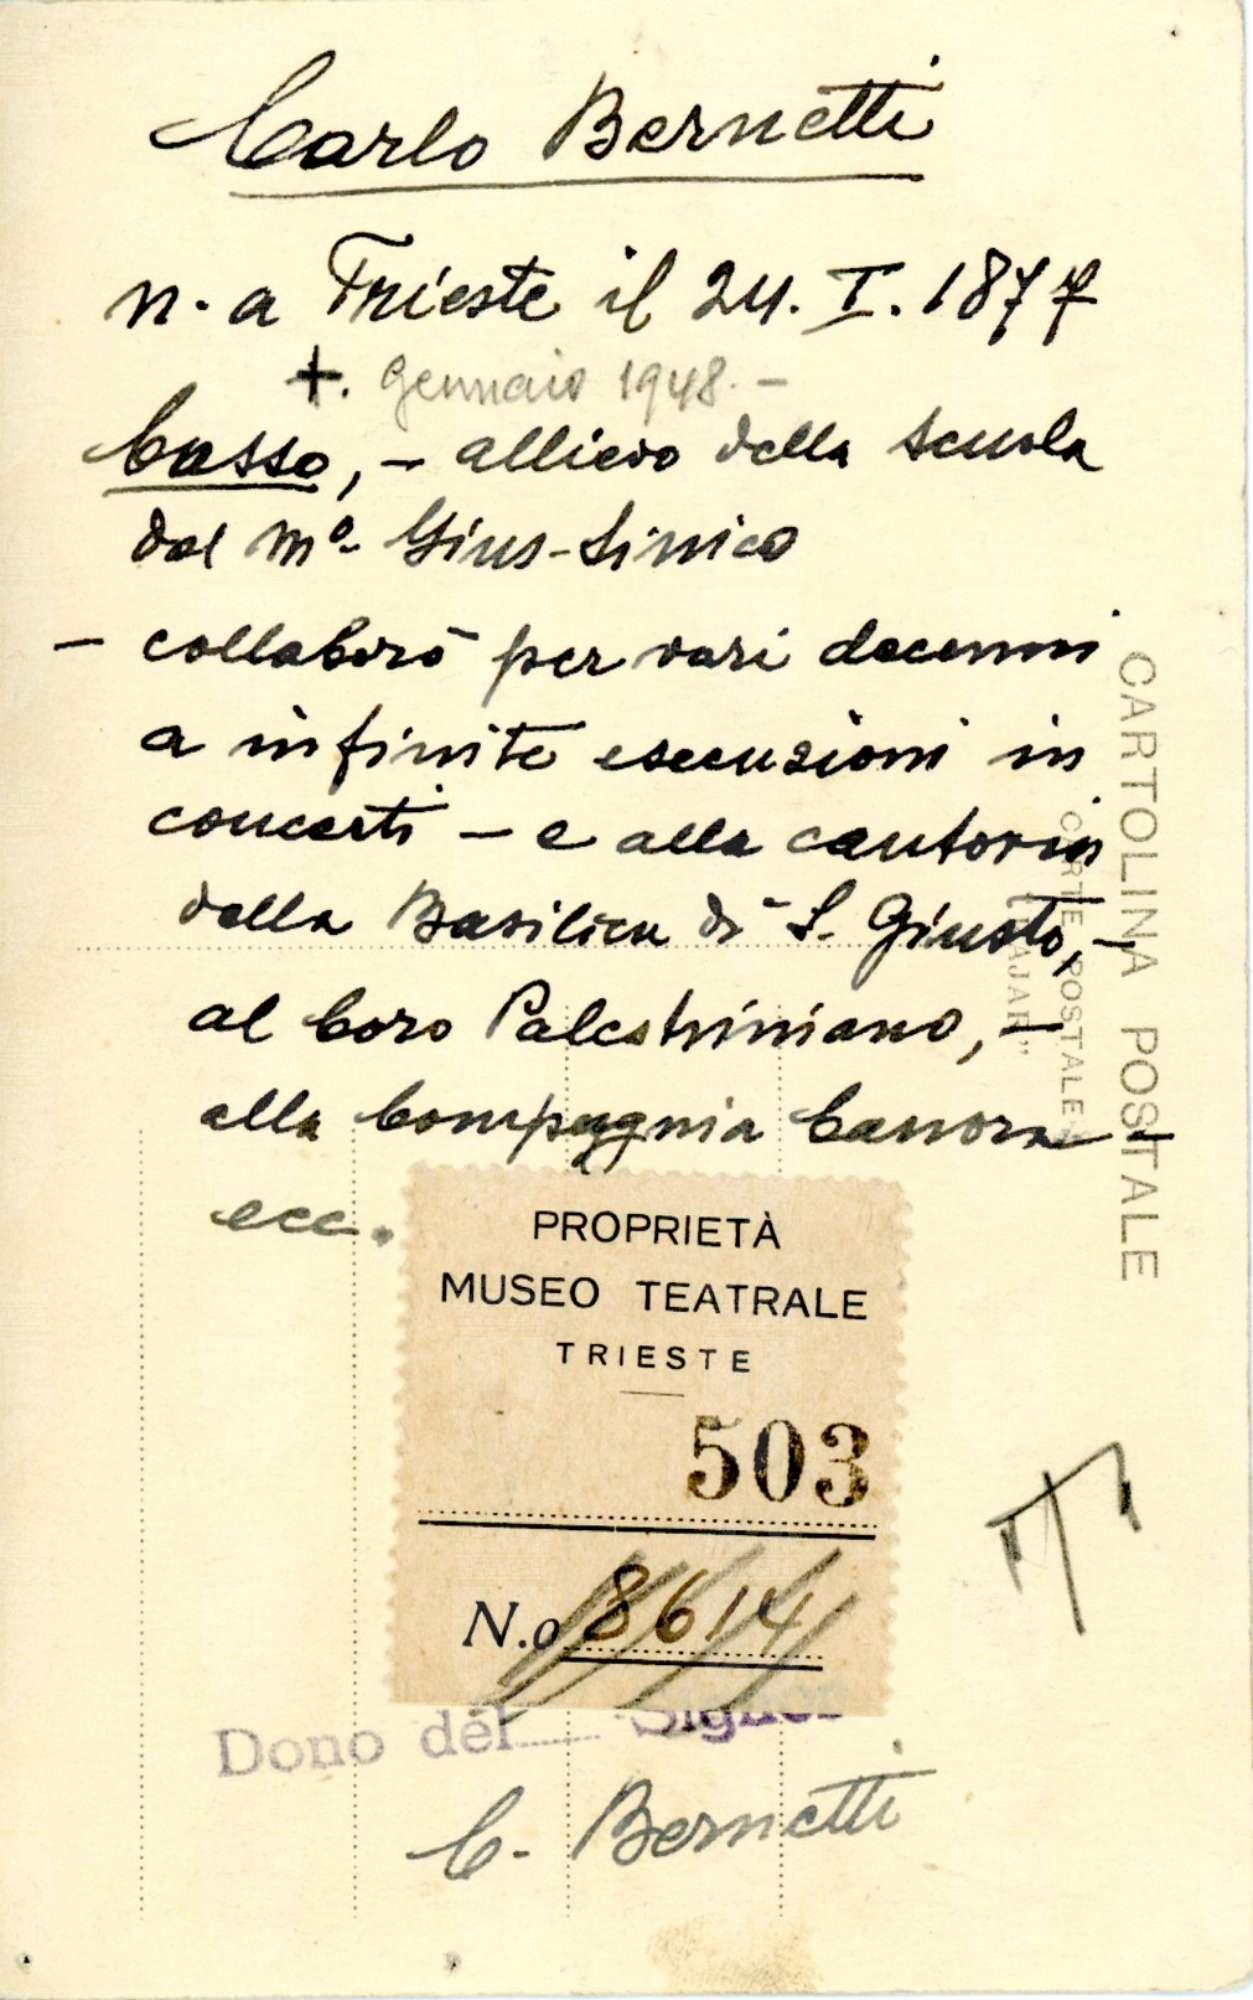 Carlo Bernetti
n. a Trieste il 24. I. 1877
+. Gennaio 1948. –
basso, – allievo della scuola
del Mº. Gius. Sinico
– collaborò per vari decenni
a infinite esecuzioni in
concerti – e alla cantoria
della Basilica di S. Giusto, –
al Coro Palestriniano, –
alla Compagnia Canora –
ecc.
CARTOLINA POSTALE
CARTE POSTALE
PROPRIETÀ
MUSEO TEATRALE
TRIESTE
503
N.o 8614
Dono del Signor
C. Bernetti